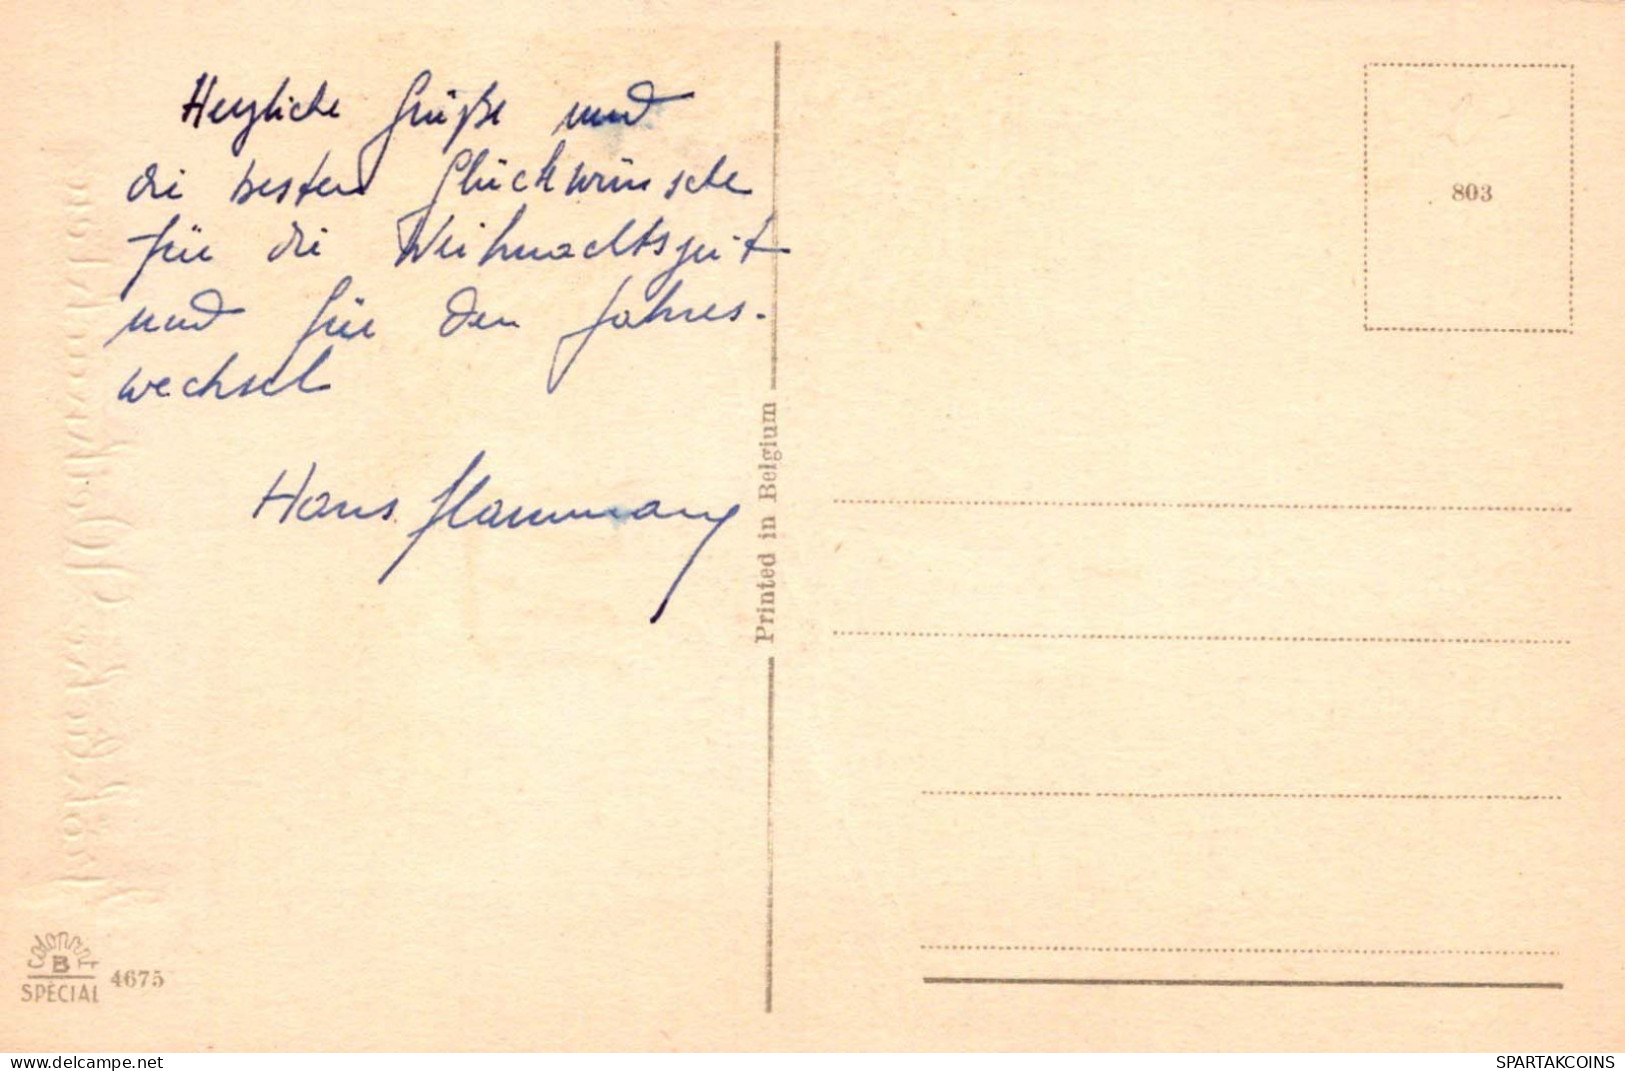 Herzliche Grüße und
die besten Glückwünsche
für die Weihnachtszeit
und für den Jahres-
wechsel
Hans
Printed in Belgium
803
coloprint
B
SPÉCIAL
4675
www.delcampe.net
SPARTAKCOINS